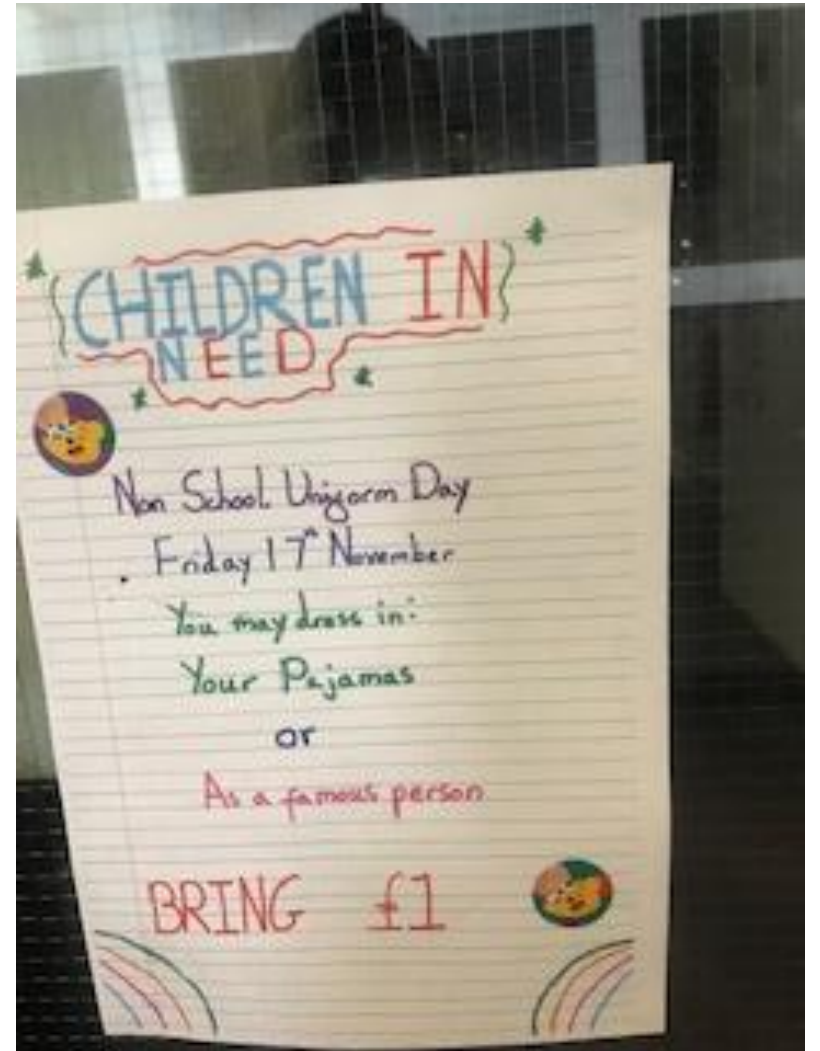 CHILDREN IN
NEED
Non School Uniform Day
Friday 17th November
You may dress in:
Your Pajamas
or
As a famous person
BRING £1